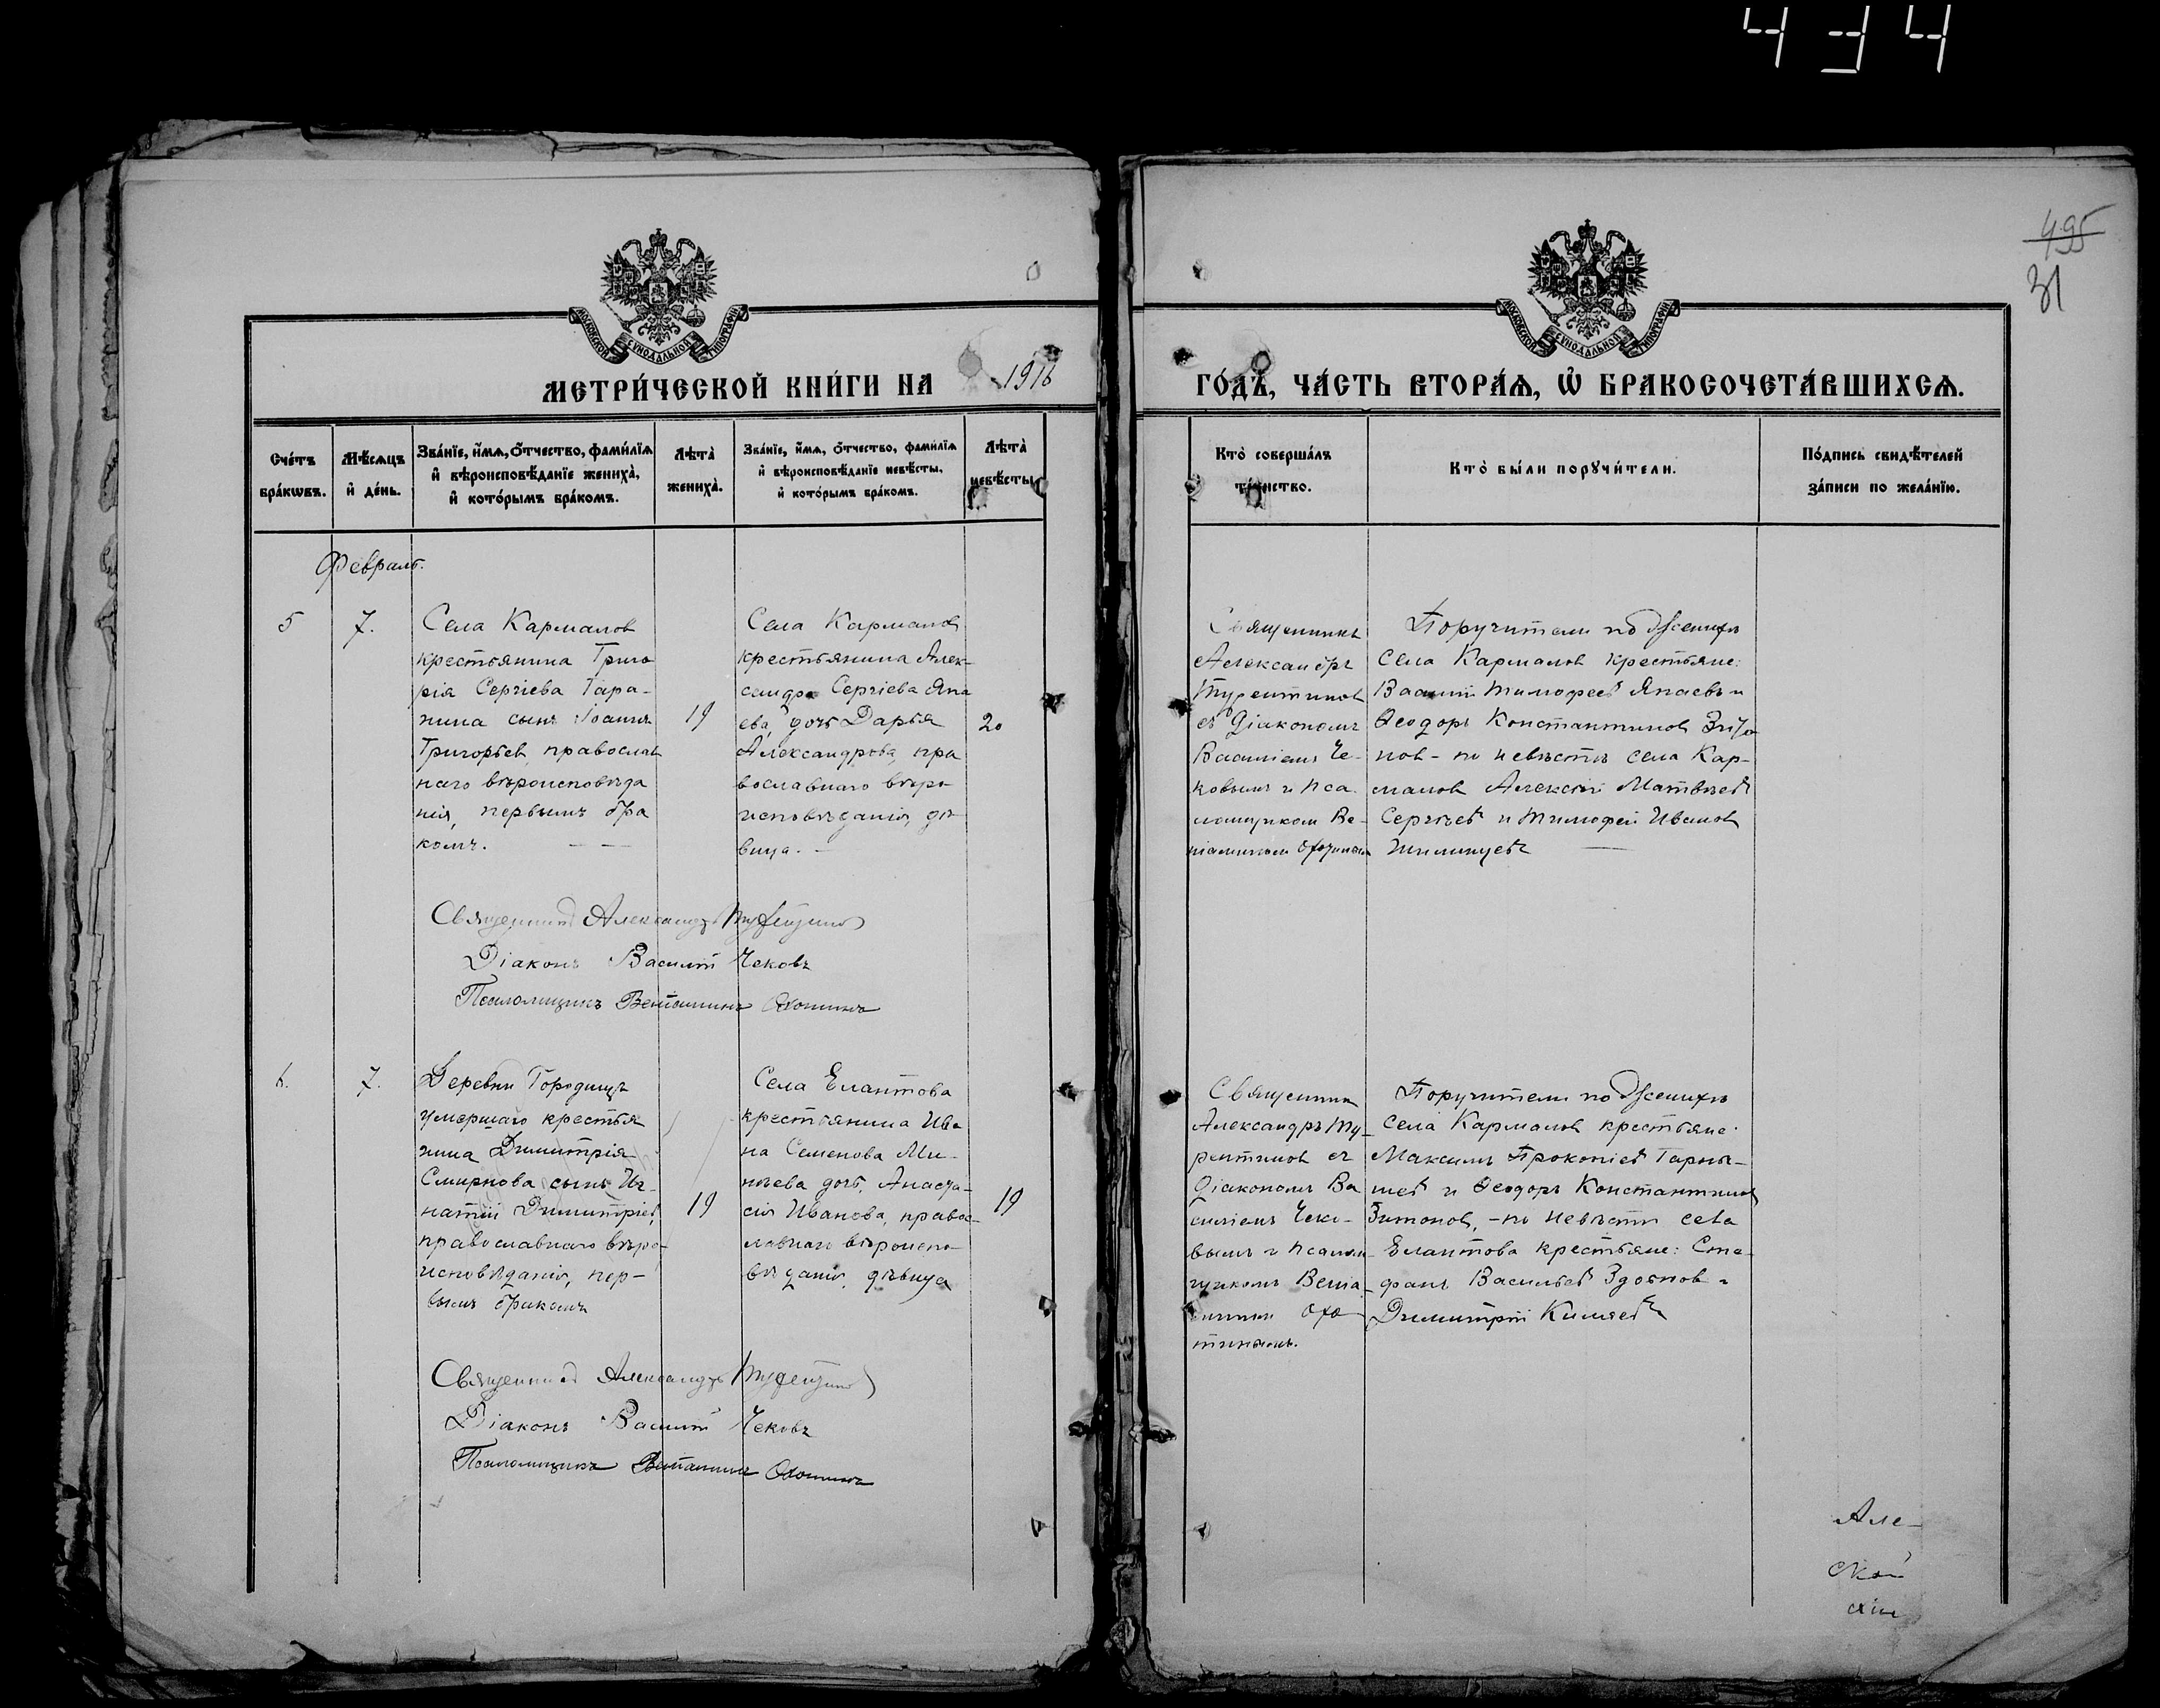 434
495
31
МОСКОВСКОЙ СУНОДАЛЬНОЙ ТИПОГРАФІИ
МОСКОВСКОЙ СУНОДАЛЬНОЙ ТИПОГРАФІИ
МЕТРИ́ЧЕСКОЙ КНИ́ГИ НА 1916
ГО́ДЪ, ЧА́СТЬ ВТОРА́Я, Ѿ БРАКОСОЧЕТА́ВШИХСЯ.
Сче́тъ бра́кѡвъ.
Мѣ́сяцъ и҆ де́нь.
Зва́нїе, и҆́мя, ѻ҆́тчество, фами́лїя
и҆ вѣроисповѣ́данїе жениха̀,
и҆ кото́рымъ бра́комъ.
Лѣта̀ жениха̀.
Зва́нїе, и҆́мя, ѻ҆́тчество, фами́лїя
и҆ вѣроисповѣ́данїе невѣ́сты,
и҆ кото́рымъ бра́комъ.
Лѣта̀ невѣ́сты
Кто̀ соверша́лъ
та́инство.
Кто̀ бы́ли порꙋчи́тели.
По́дпись свидѣ́телей
за́писи по жела́нїю.
Февраль.
5
7.
Села Кармалов
крестьянина Григо
рія Сергіева Тара-
нина сынъ Іоаннъ
Григорьев, православ
наго вѣроисповѣда
нія, первымъ бра
комъ.
19
Села Кармалов
крестьянина Алек-
сандра Сергіева Япа
ева, дочь Дарья
Александрова, пра
вославнаго вѣро
исповѣданія, дѣ
вица.
20
Священникъ
Александръ
Турентинов
съ Діакономъ
Василіемъ Че-
ковымъ и пса
ломщиком Ве-
ніаминомъ Охотиным
Поручители по женихѣ
села Кармалов крестьяне:
Василій Тимофеев Япаевъ и
Ѳеодоръ Константинов
нов - по невѣстѣ села Кар-
малов Алексій Матвѣев
Сергѣев и Тимофей Иванов
Священник Александръ
Діаконъ Василій Чековъ
Псаломщикъ Веніаминъ Охотинъ
6.
7.
Деревни Городищъ
умершаго крестья
нина Димитрія
Смирнова сынъ Иг-
натій Димитріев,
православнаго вѣро-
исповѣданія, пер-
вымъ бракомъ
19
Села Елантова
крестьянина Ива
на Семенова Ми-
нѣева дочь, Анаста-
сія Иванова, правос-
лавнаго вѣроиспо-
вѣданія, дѣвица
19
Священник
Александръ Ту-
рентинов съ
Діакономъ Ва
силіемъ Чеко-
вымъ и псалом-
щикомъ Веніа-
минном Охо
тинымъ.
Поручители по женихѣ
села Кармалов крестьяне:
Максимъ Прокопіев
и Ѳеодоръ Константинов
- по невѣстѣ села
Елантова крестьяне: Сте-
фанъ Васильев и
Димитрій
Священник Александръ
Діаконъ Василій Чековъ
Псаломщикъ Веніаминъ Охотинъ
Але-
ской